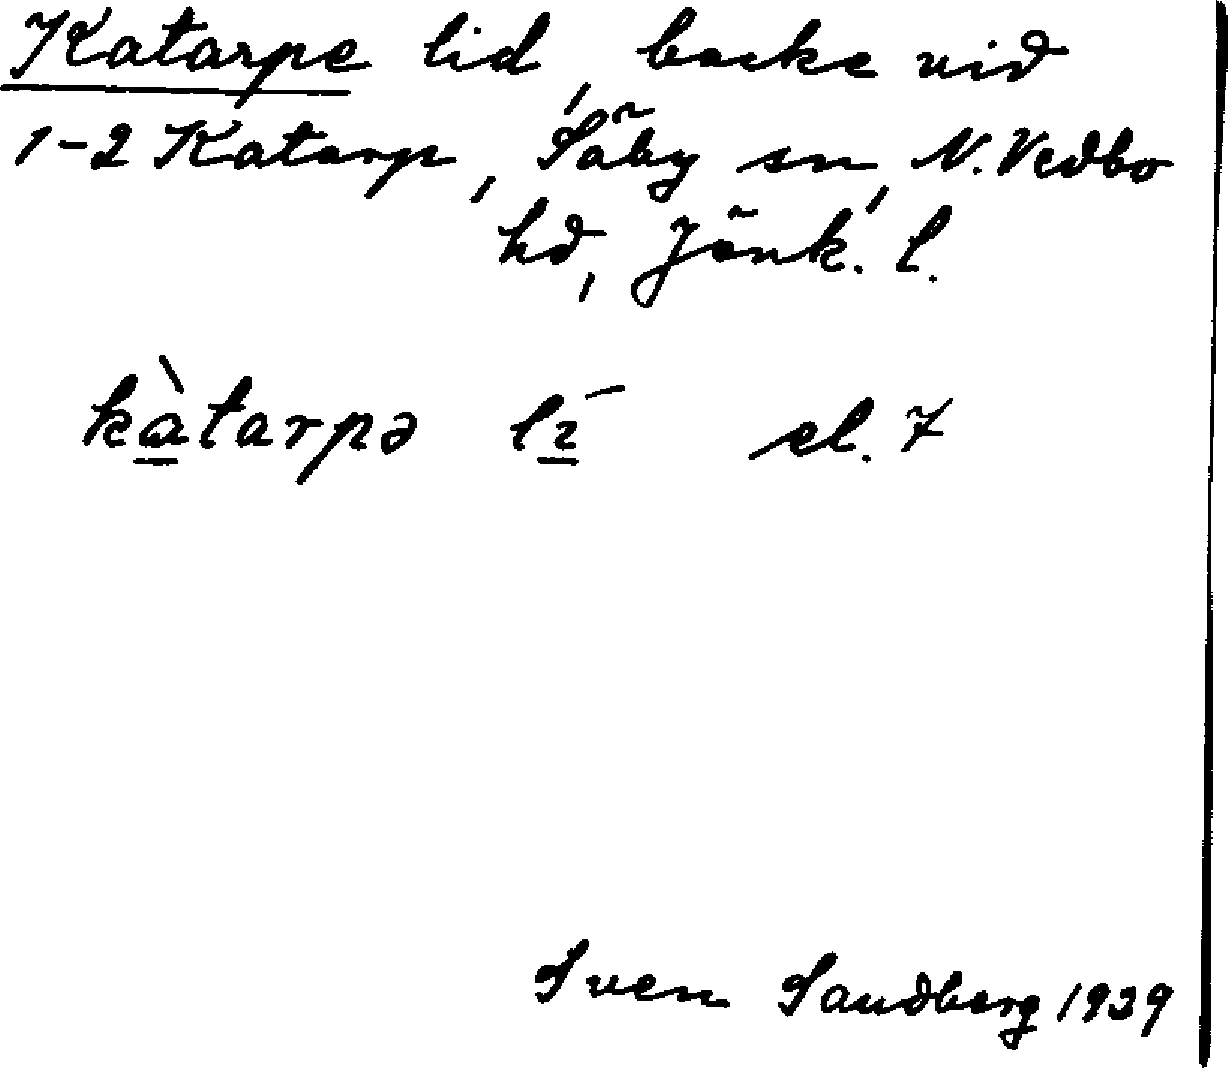 Katarpe lid, backe vid
1-2 Katarp, Säby sn, N. Vedbo
hd, Jönk. l.
kàtarpə lí el. 7
Sven Sandberg 1939